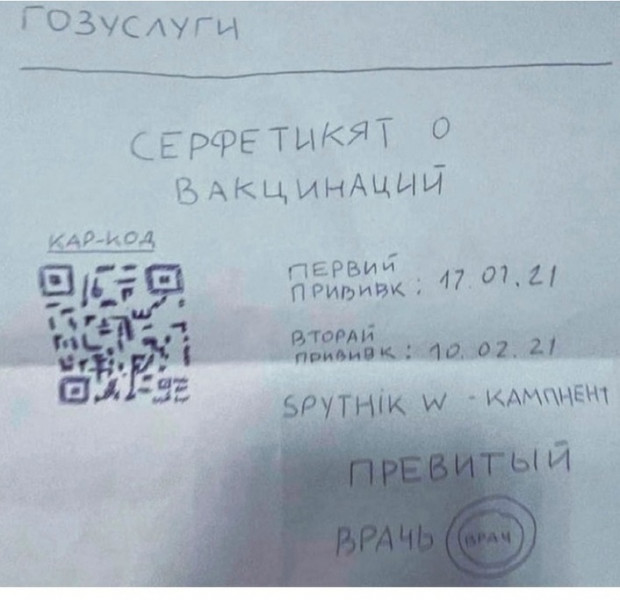 ГОЗУСЛУГИ
СЕРФЕТИКЯТ О
ВАКЦИНАЦИЙ
КАР-КОД
ПЕРВИЙ
ПРИВИВК: 17.01.21
ВТОРАЙ
ПРИВИВК: 10.02.21
SPYTHiK W - КАМПНЕНТ
ПРЕВИТЫЙ
ВРАЧЬ ВРАЧ